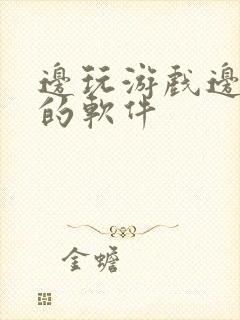 邊玩游戲邊
的軟件
金蟾